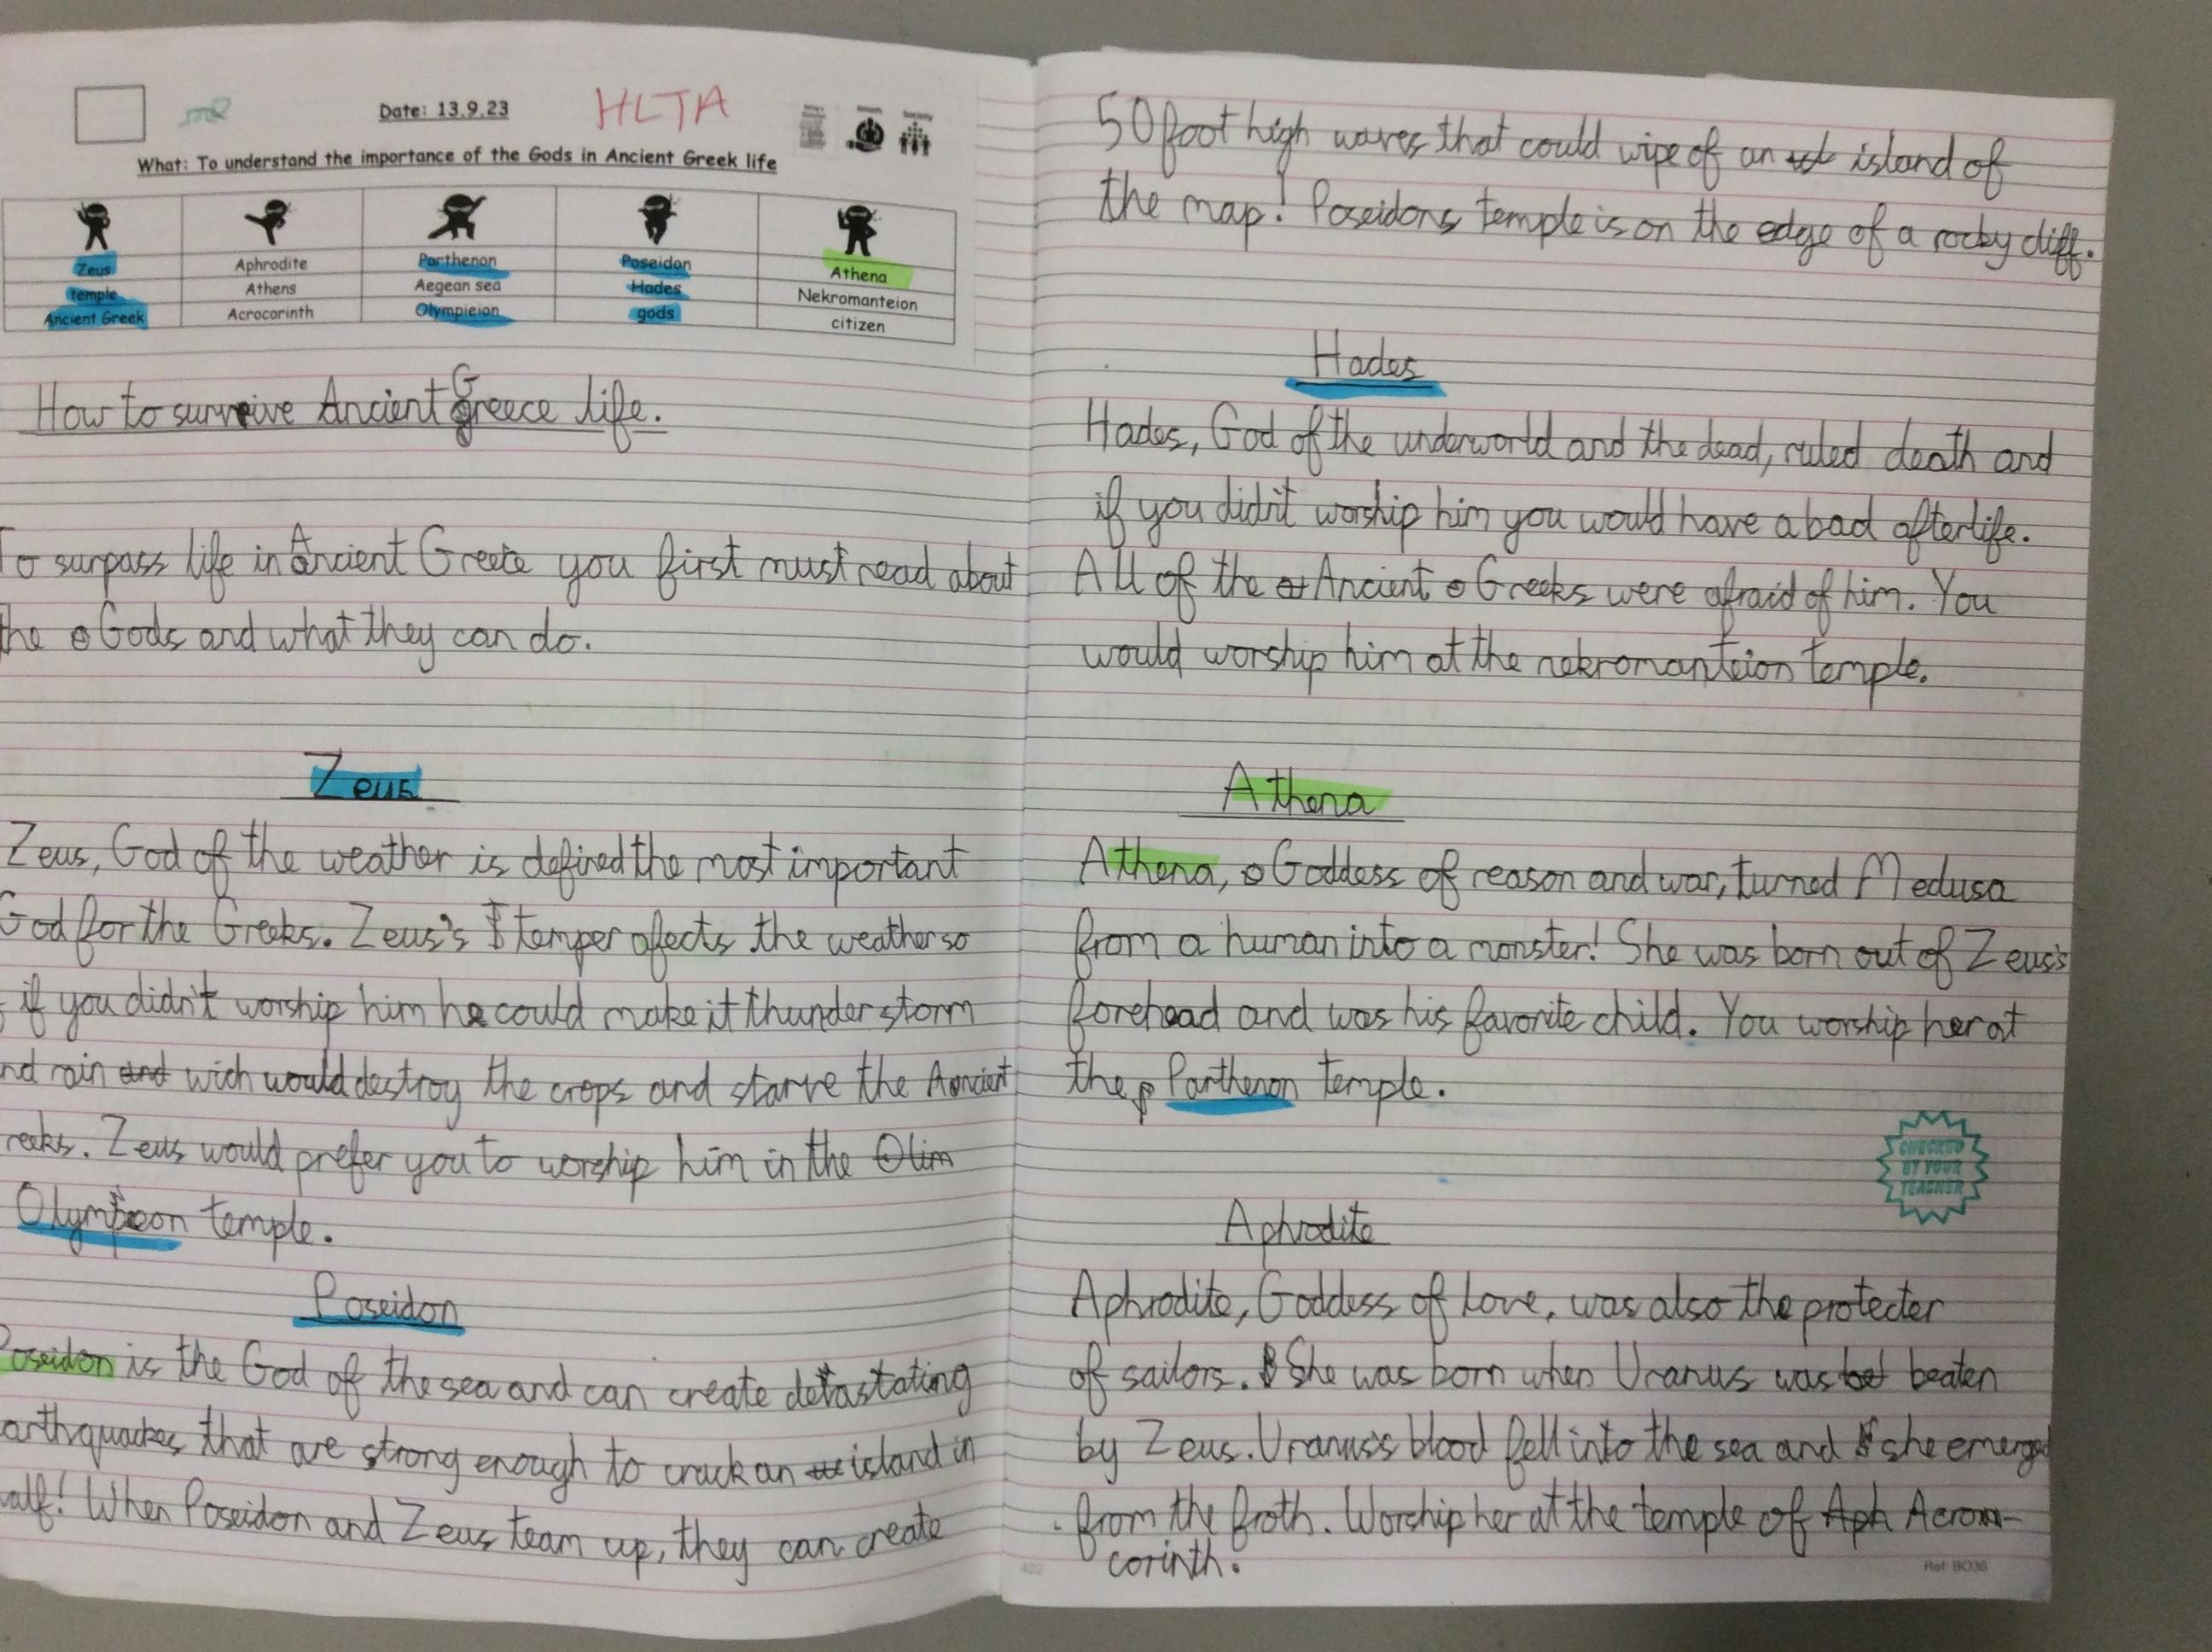 Date: 13.9.23
HLTA
What: To understand the importance of the Gods in Ancient Greek life
Zeus Aphrodite Parthenon Poseidon Athena
temple Athens Aegean sea Hades Nekromanteion
Ancient Greek Acrocorinth Olympieion gods citizen
How to survive Ancient Greece life.
To surpass life in Ancient Greece you first must read about
the Gods and what they can do.
Zeus
Zeus, God of the weather is defined the most important
God for the Greeks. Zeus's temper afects the weather so
if you didn't worship him he could make it thunder storm
nd rain and wich would destroy the crops and starve the Ancient
reeks. Zeus would prefer you to worship him in the Olim
temple.
Poseidon
Poseidon is the God of the sea and can create devastating
arthquackes that are strong enough to crack an island in
alf! When Poseidon and Zeus team up, they can create
50 foot high waves that could wipe of an island of
the map! Poseidons temple is on the edge of a rocky cliff.
Hades
Hades, God of the underworld and the dead, ruled death and
if you didn't worship him you would have a bad afterlife.
All of the Ancient Greeks were afraid of him. You
would worship him at the nekromanteion temple.
Athena
Athena, Goddess of reason and war, turned Medusa
from a human into a monster! She was born out of Zeus's
forehead and was his favorite child. You worship her at
the Parthenon temple.
CHECKED
BY YOUR
TEACHER
Aphrodite
Aphrodite, Goddess of love, was also the protecter
of sailors. She was born when Uranus was beaten
by Zeus. Uranus's blood fell into the sea and she emerged
from the froth. Worship her at the temple of Aph Acro-
corinth.
Ref: BO36